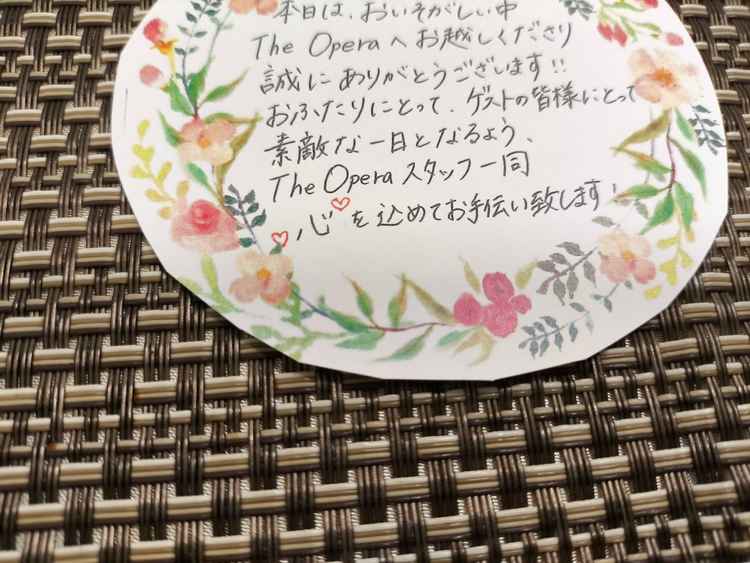 本日は、おいそがしい中
The Operaへお越しくださり
誠にありがとうございます!!
おふたりにとって、ゲストの皆様にとって
素敵な一日となるよう、
The Operaスタッフ一同
心を込めてお手伝い致します!